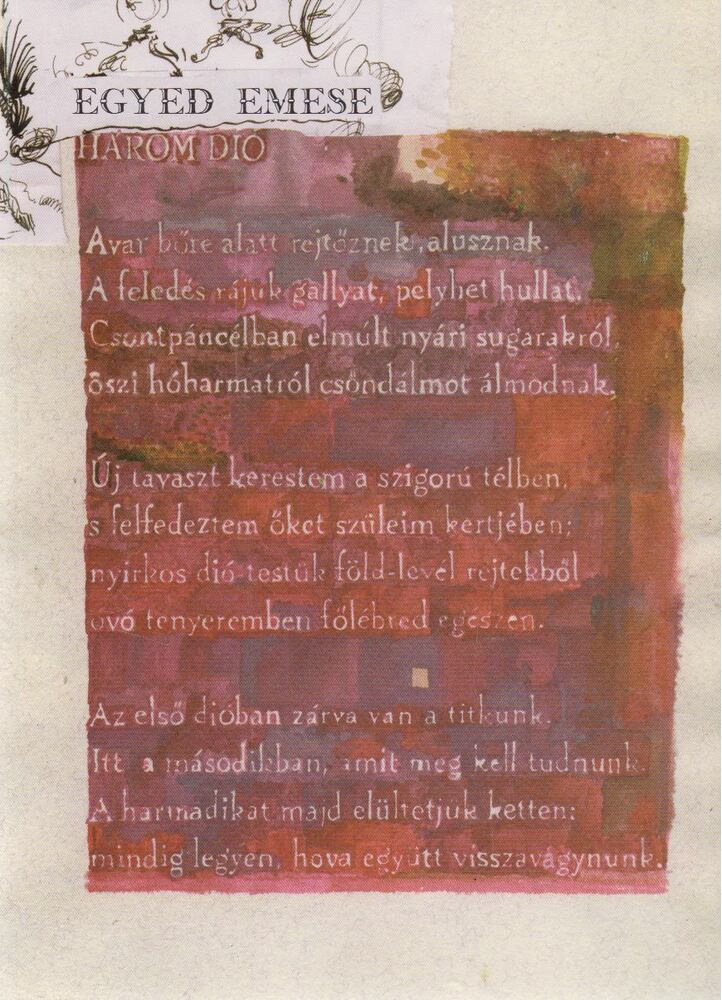 EGYED EMESE
HÁROM DIÓ
Avar bőre alatt rejtőznek, alusznak.
A feledés rájuk gallyat, pelyhet hullat.
Csontpáncélban elmúlt nyári sugarakról,
őszi hóharmatról csöndálmot álmodnak.
Új tavaszt kerestem a szigorú télben,
s felfedeztem őket szüleim kertjében;
nyirkos dió-testük föld-levél rejtekből
óvó tenyeremben fölébred egészen.
Az első dióban zárva van a titkunk.
Itt a másodikban, amit meg kell tudnunk.
A harmadikat majd elültetjük ketten:
mindig legyen, hova együtt visszavágynunk.